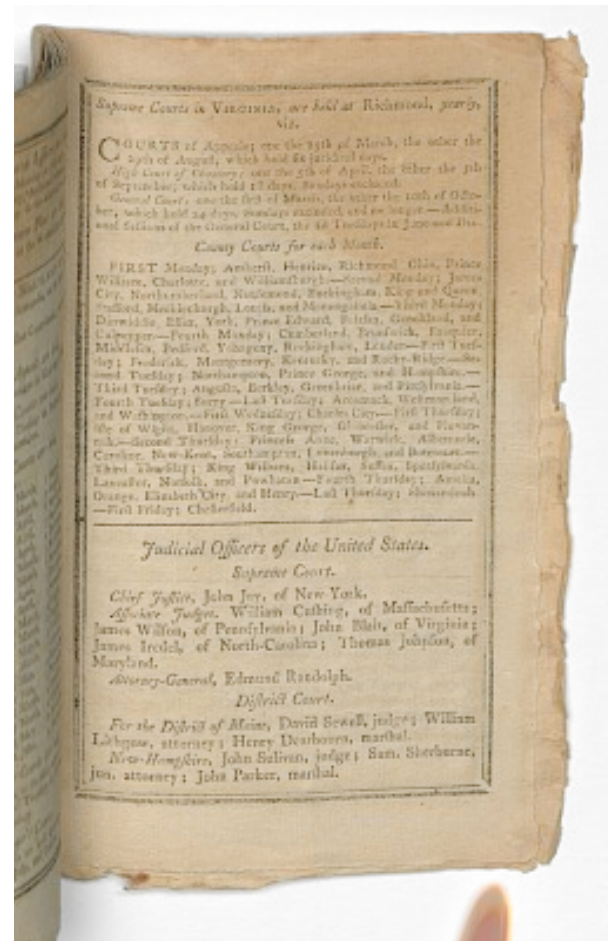 Supreme Courts in VIRGINIA, are held at Richmond, yearly,
viz.
COURTS of Appeals; one the 29th of March, the other the
29th of August, which hold six juridical days.
High Court of Chancery; one the 5th of April, the other the 5th
of September, which hold 18 days, Sundays excluded.
General Court, one the first of March, the other the 10th of Octo-
ber, which hold 24 days, Sundays excluded, and no longer.—Additi-
onal Sessions of the General Court, the 2d Tuesdays in June and Dec.
County Courts for each Month.
FIRST Monday; Amherst, Henrico, Richmond, Ohio, Prince
William, Charlotte, and Williamsburgh.—Second Monday; James
City, Northumberland, Nansemond, Rockingham, King and Queen,
Stafford, Mecklenburgh, Louisa, and Monongahela.—Third Monday;
Dinwiddie, Essex, York, Prince Edward, Fairfax, Goochland, and
Culpepper.—Fourth Monday; Cumberland, Brunswick, Fauquier,
Middlesex, Bedford, Yohogany, Buckingham, Loudon—First Tues-
day; Frederick, Montgomery, Kentucky, and Rocky-Ridge.—Se-
cond Tuesday; Northampton, Prince George, and Hampshire.—
Third Tuesday; Augusta, Berkley, Greenbrier, and Pittsylvania.—
Fourth Tuesday; Surry.—Last Tuesday; Accomack, Westmoreland,
and Washington.—First Wednesday; Charles City.—First Thursday;
Isle of Wight, Hanover, King George, Gloucester, and Fluvan-
nah.—Second Thursday; Princess Anne, Warwick, Albemarle,
Caroline, New-Kent, Southampton, Lunenburgh, and Botetourt.—
Third Thursday; King William, Halifax, Sussex, Spotsylvania,
Lancaster, Norfolk, and Powhatan.—Fourth Thursday; Amelia,
Orange, Elizabeth City, and Henry.—Last Thursday; Shenandoah.
—First Friday; Chesterfield.
Judicial Officers of the United States.
Supreme Court.
Chief Justice, John Jay, of New York.
Associate Judges, William Cushing, of Massachusetts;
James Wilson, of Pennsylvania; John Blair, of Virginia;
James Iredel, of North-Carolina; Thomas Johnson, of
Maryland.
Attorney-General, Edmund Randolph.
District Court.
For the District of Maine, David Sewell, judge; William
Lithgow, attorney; Henry Dearbourn, marshal.
New-Hampshire, John Sulivan, judge; Sam. Sherburne,
jun. attorney; John Parker, marshal.